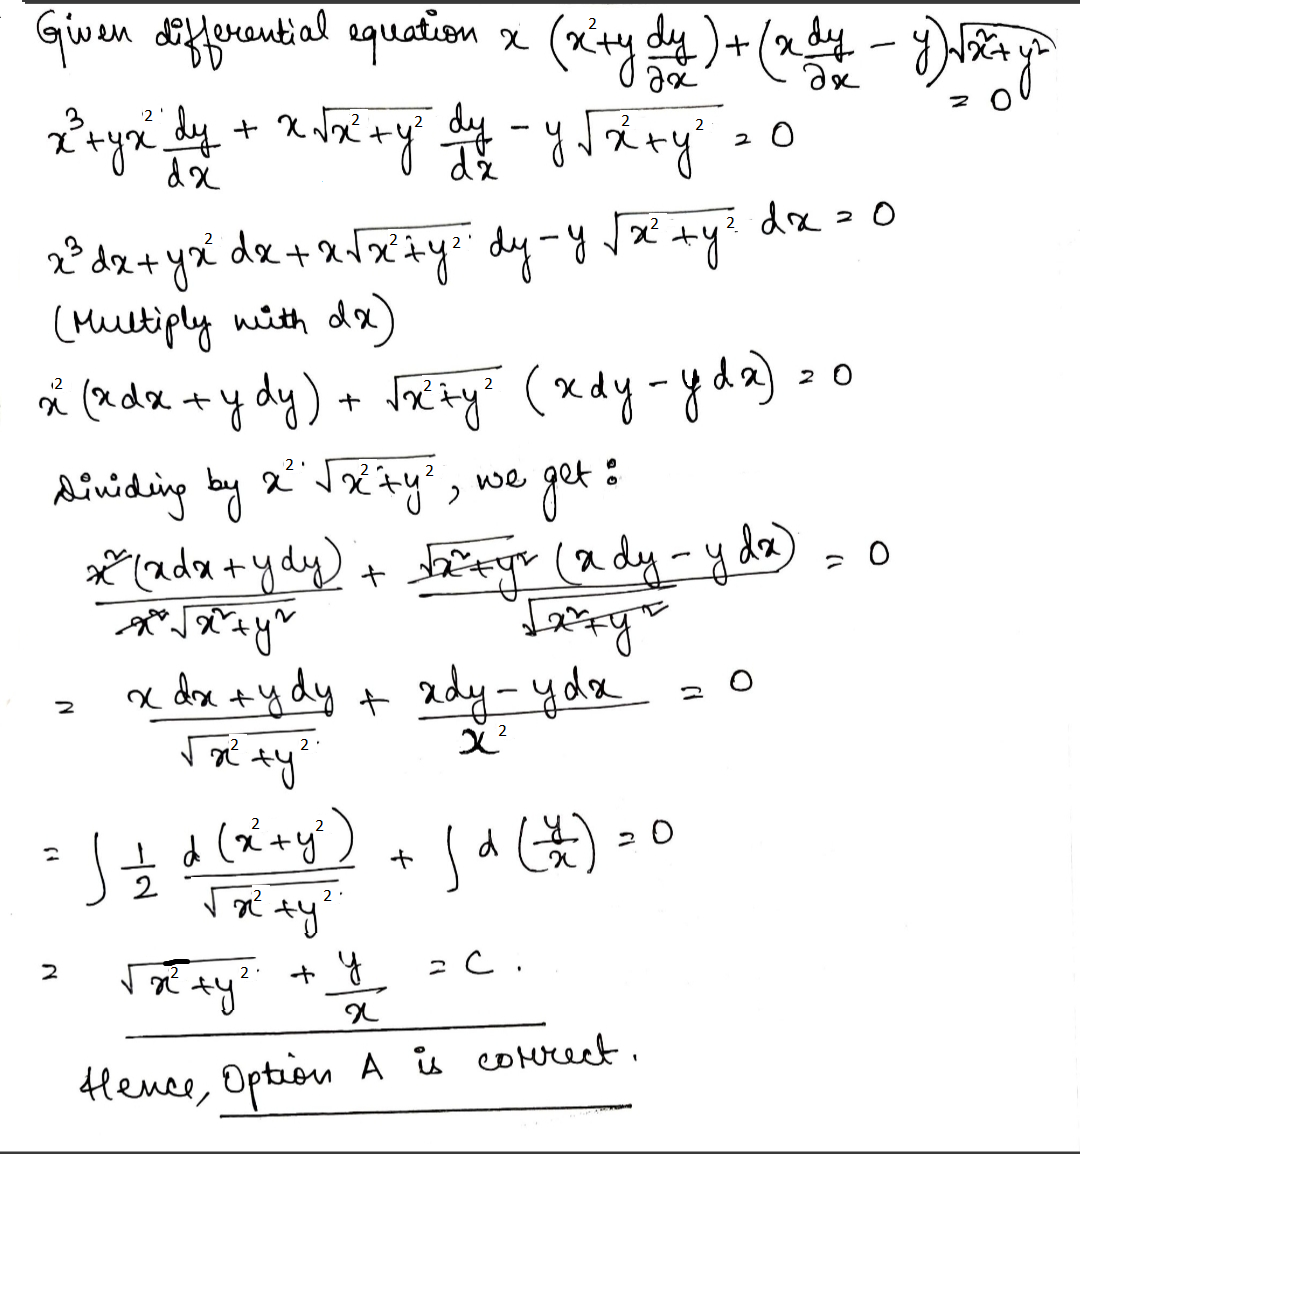 Given differential equation x (x²+y dy/∂x)+(x dy/∂x − y)√x²+y²
= 0
x³+yx² dy/dx + x√x²+y² dy/dx − y√x²+y² = 0
x³dx+yx²dx+x√x²+y² dy−y√x²+y² dx = 0
(Multiply with dx)
x²(xdx+ydy) + √x²+y² (xdy−ydx) = 0
Dividing by x²√x²+y², we get:
x²(xdx+ydy)/x²√x²+y² + √x²+y² (xdy−ydx)/√x²+y² = 0
= x dx+ydy/√x²+y² + xdy−ydx/x² = 0
= ∫ 1/2 d(x²+y²)/√x²+y² + ∫ d(y/x) = 0
= √x²+y² + y/x = C.
Hence, Option A is correct.